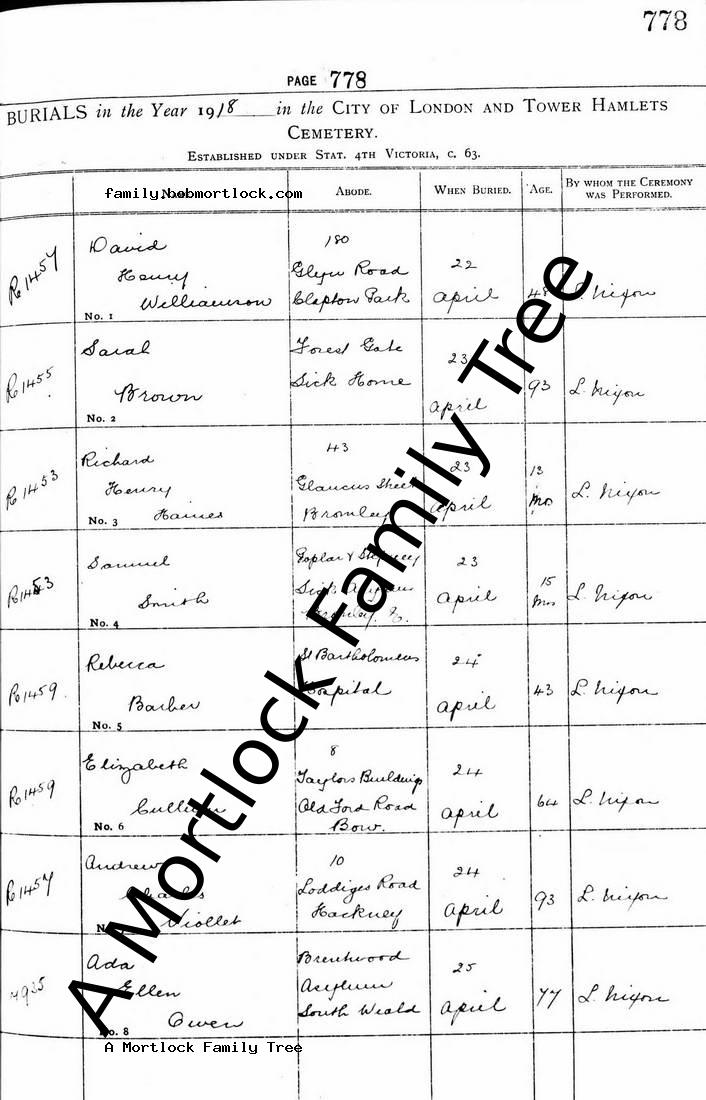 778
PAGE 778
BURIALS in the Year 1918 in the CITY OF LONDON AND TOWER HAMLETS
CEMETERY.
ESTABLISHED UNDER STAT. 4TH VICTORIA, C. 63.
family.bobmortlock.com ABODE. WHEN BURIED. AGE. BY WHOM THE CEREMONY WAS PERFORMED.
David 180
Henry Glyn Road 22
R1457 Williamson Clapton Park April 48 L. Nixon
No. 1
Sarah Forest Gate 23
R1455 Brown Sick Home April 93 L. Nixon
No. 2
Richard 43
Henry Glaucus Street 23 13
R1453 Haines Bromley April Mos L. Nixon
No. 3
Samuel Poplar & Stepney 23 15
R1453 Smith Sick Asylum April Mos L. Nixon
No. 4 Bromley. E.
Rebecca St Bartholomews 24
R1459 Barber Hospital April 43 L. Nixon
No. 5
Elizabeth 8
Taylors Buildings 24
R1459 Old Ford Road April 64 L. Nixon
No. 6 Bow.
Andrew 10
Charles Loddiges Road 24
R1457 Viollet Hackney April 93 L. Nixon
Ada Brentwood
Ellen Asylum 25
7935 Owen South Weald April 77 L. Nixon
No. 8
A Mortlock Family Tree
A Mortlock Family Tree